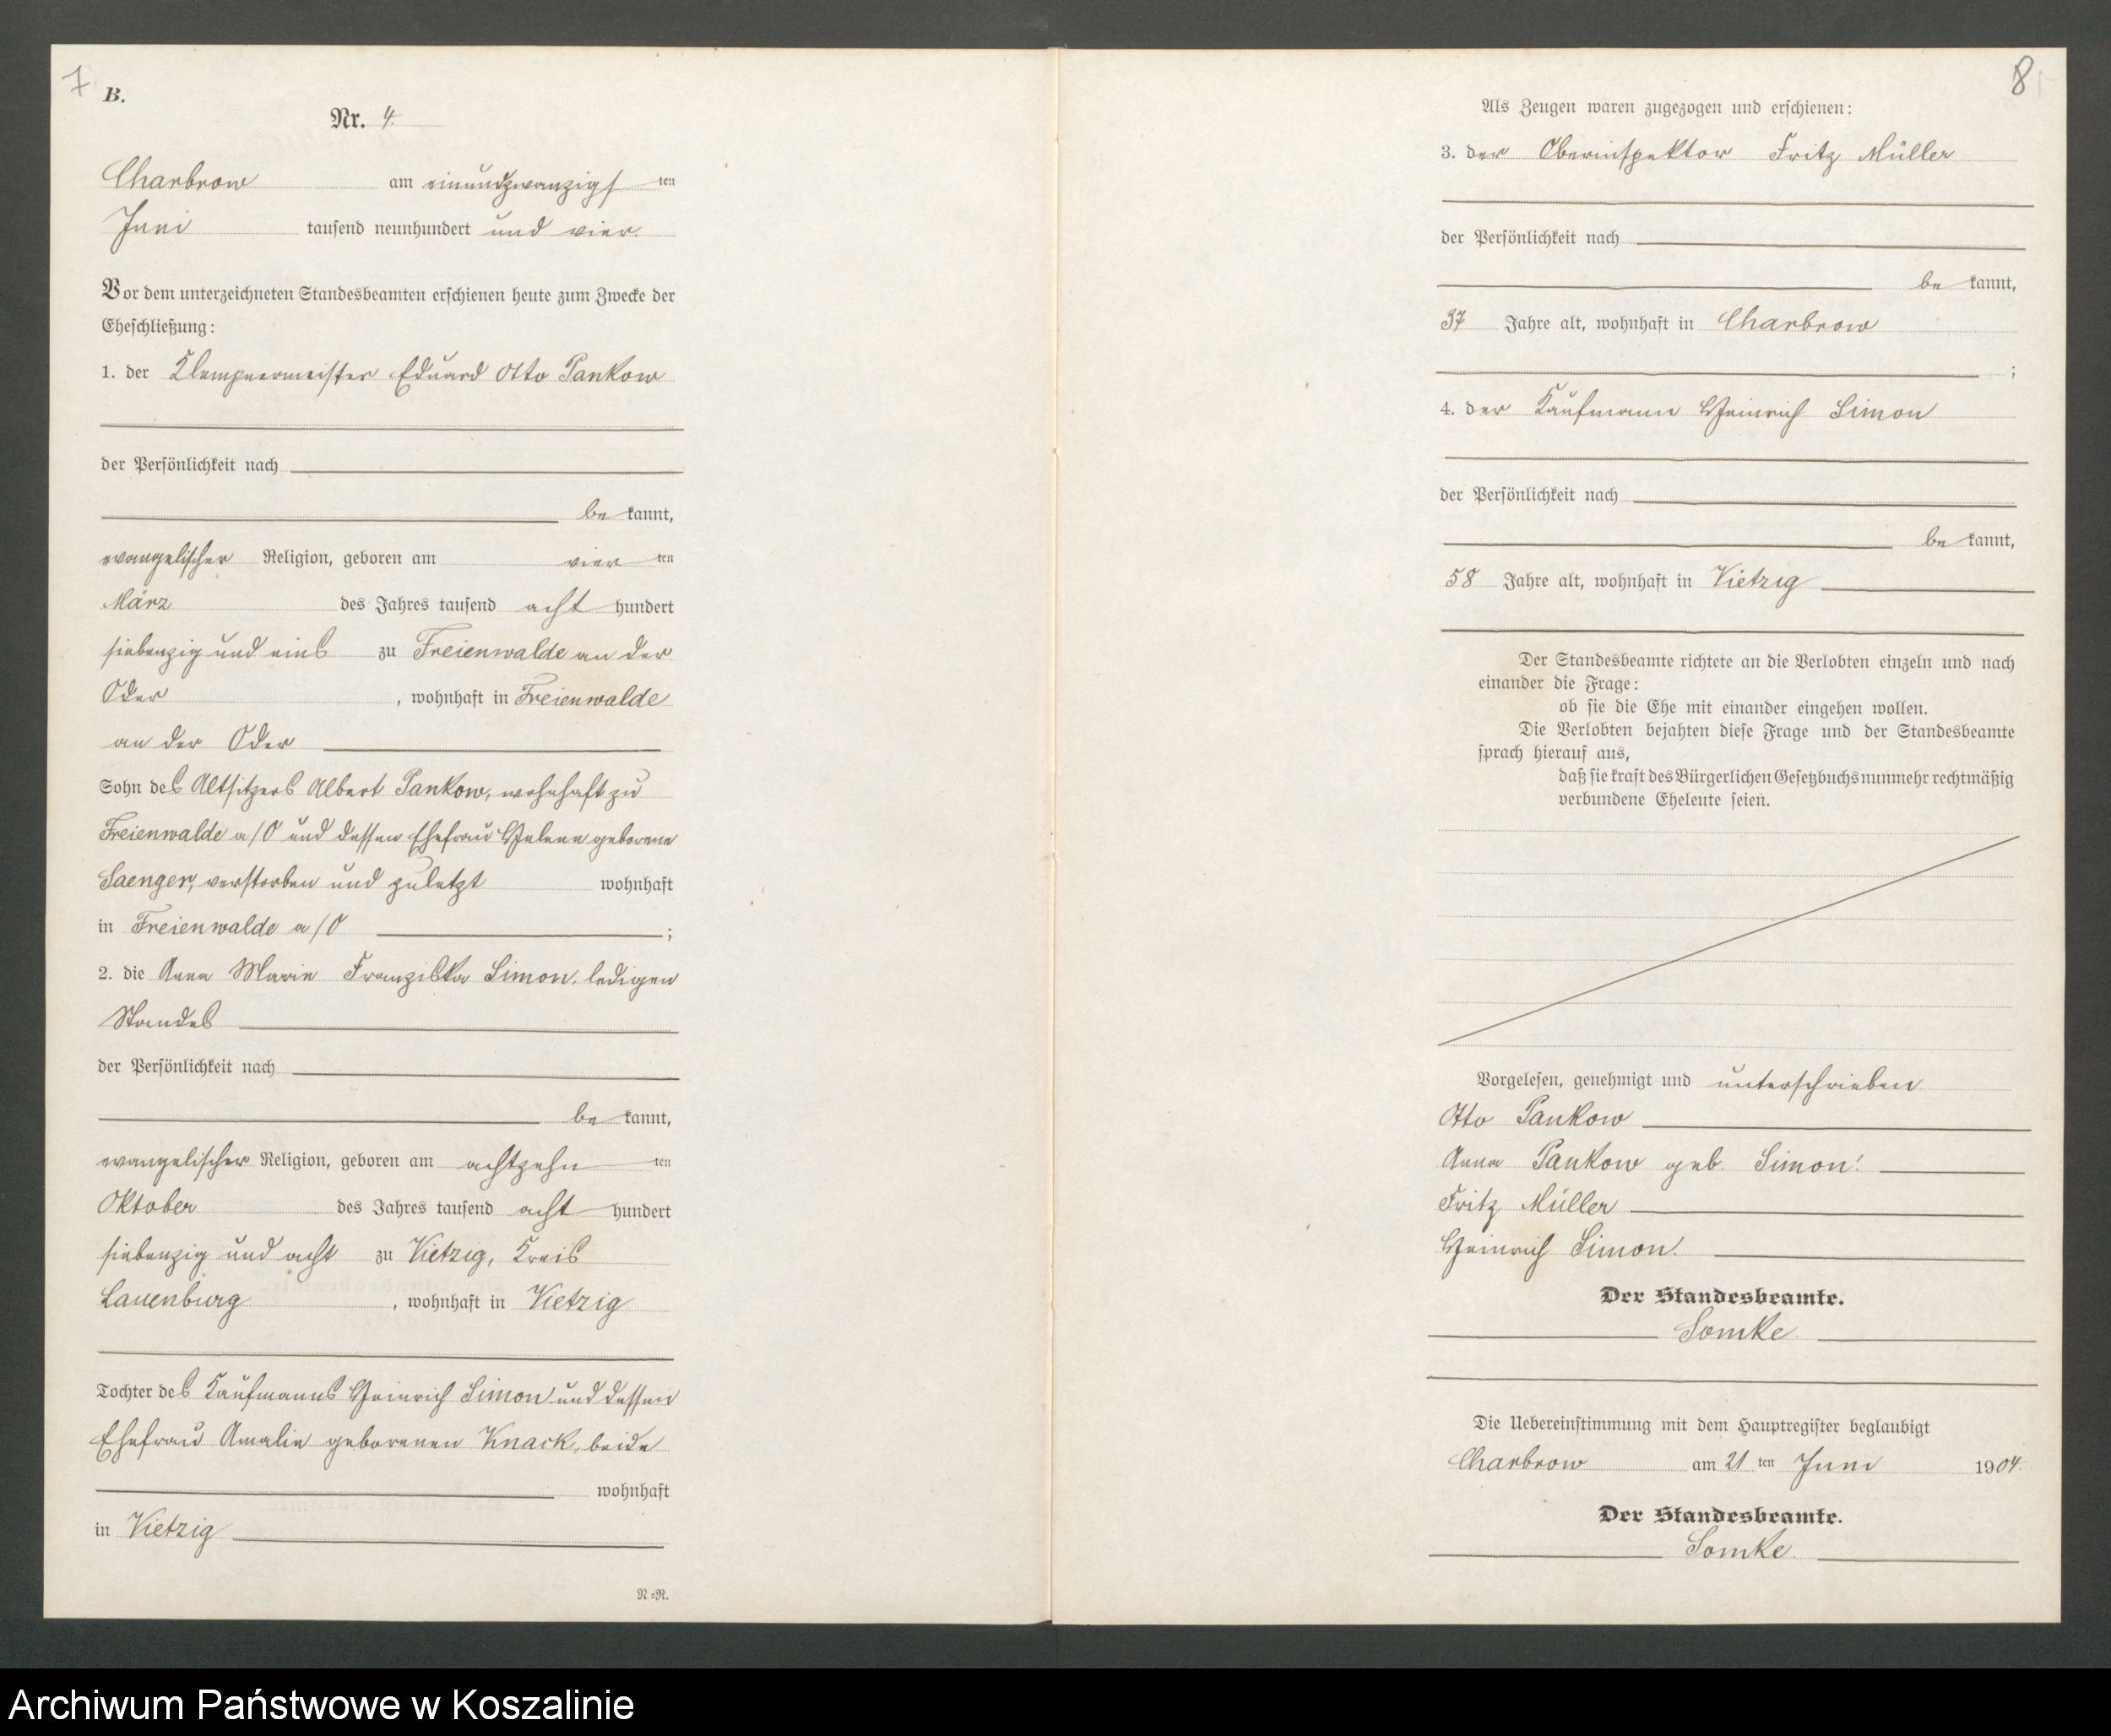 7
B.
Nr. 4.
Charbrow am einundzwanzigsten
Juni tausend neunhundert und vier.
Vor dem unterzeichneten Standesbeamten erschienen heute zum Zwecke der
Eheschließung:
1. der Klempnermeister Eduard Otto Pankow
der Persönlichkeit nach
be kannt,
evangelischer Religion, geboren am vier ten
März des Jahres tausend acht hundert
siebenzig und eins zu Freienwalde an der
Oder, wohnhaft in Freienwalde
an der Oder
Sohn des Altsitzers Albert Pankow, wohnhaft zu
Freienwalde a/O und dessen Ehefrau Helene geborene
Saenger, verstorben und zuletzt wohnhaft
in Freienwalde a/O ;
2. die Anna Marie Franziska Simon, ledigen
Standes
der Persönlichkeit nach
be kannt,
evangelischer Religion, geboren am achtzehn ten
Oktober des Jahres tausend acht hundert
siebenzig und acht zu Vietzig, Kreis
Lauenburg, wohnhaft in Vietzig
Tochter des Kaufmanns Heinrich Simon und dessen
Ehefrau Amalie geborenen Knack, beide
wohnhaft
in Vietzig
N=R.
8
Als Zeugen waren zugezogen und erschienen:
3. der Oberinspektor Fritz Müller
der Persönlichkeit nach
be kannt,
37 Jahre alt, wohnhaft in Charbrow
;
4. der Kaufmann Heinrich Simon
der Persönlichkeit nach
be kannt,
58 Jahre alt, wohnhaft in Vietzig
Der Standesbeamte richtete an die Verlobten einzeln und nach
einander die Frage:
ob sie die Ehe mit einander eingehen wollen.
Die Verlobten bejahten diese Frage und der Standesbeamte
sprach hierauf aus,
daß sie kraft des Bürgerlichen Gesetzbuchs nunmehr rechtmäßig
verbundene Eheleute seien.
Vorgelesen, genehmigt und unterschrieben
Otto Pankow
Anna Pankow geb. Simon.
Fritz Müller
Heinrich Simon.
Der Standesbeamte.
Somke.
Die Uebereinstimmung mit dem Hauptregister beglaubigt
Charbrow am 21 ten Juni 1904.
Der Standesbeamte.
Somke.
Archiwum Państwowe w Koszalinie